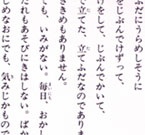 ふだにうらめしそうに
をじぶんでけずって、
けをして、じぶんでかいて、
てたて、立てふだなのでありま
ききめもありません。
ても、いろがない。毎日、おかし
だれもあそびにきはしない。ばか
じめなおにでも、気みじかもので